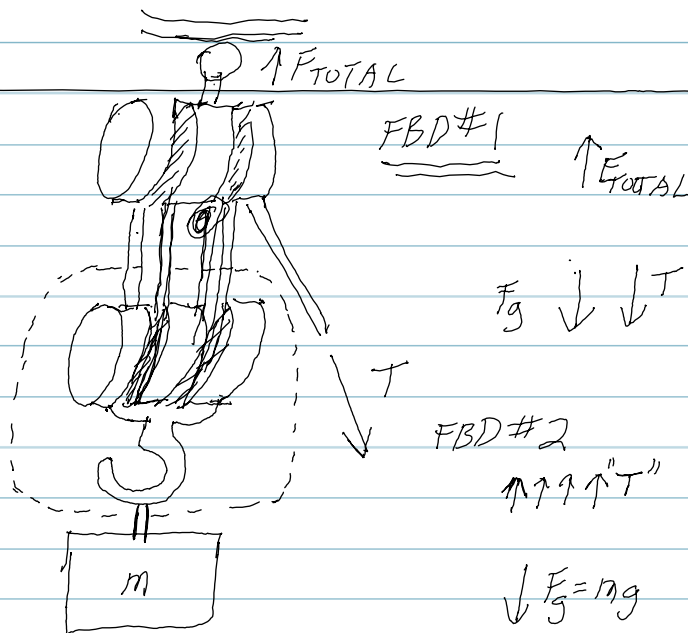 F TOTAL
FBD #1
F TOTAL
Fg T
T
FBD #2
"T"
Fg = mg
m